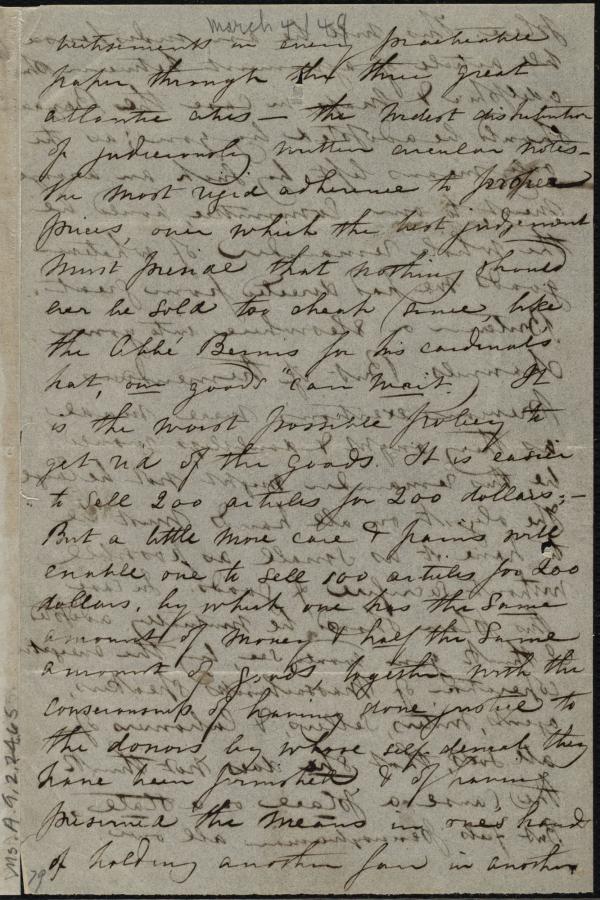 March 4 / 49
vertisements in every practicable
paper, through the three great
atlantic cities — the widest distribution
of judiciously written circular notes —
The most rigid adherence to proper
prices, over which the best judgement
must preside that nothing should
ever be sold too cheap since, like
the Abbé Bernis for his cardinals
hat, our goods "can wait." It
is the worst possible policy to
get rid of the goods. It is easier
to sell 200 articles for 200 dollars; —
But a little more care & pains will
enable one to sell 100 articles for 200
dollars, by which one has the same
amount of money & half the same
amount of goods, together with the
consciousness of having done justice to
the donors by whose self denial they
have been furnished, & of having
preserved the means in ones hand
of holding another fair in another
Ms. A.9.2.24.65
79